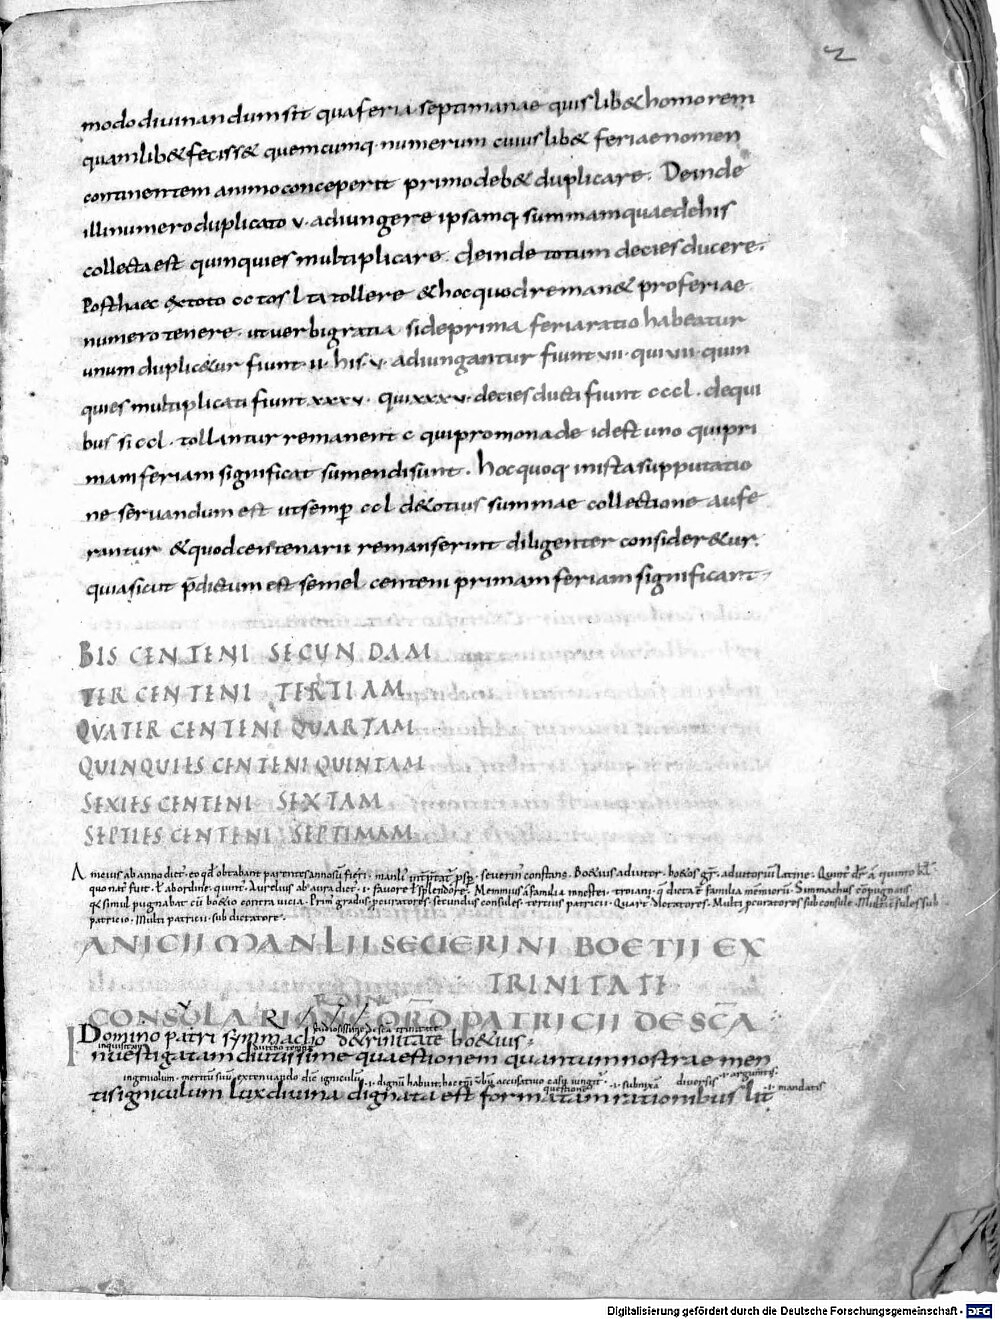 2
modo divinandum sit qua feria septimanae quislib& homo rem
quamlib& feciss& quemcumq· numerum cuiuslib& feriae nomen
continentem animo conceperit primo deb& duplicare. Deinde
illi numero duplicato v· adiungere ipsamq summam quae de his
collecta est quinquies multiplicare. deinde totum decies ducere.
Post haec ex toto cctos l ta tollere & hoc quod reman& pro feriae
numero tenere. ut verbi gratia si de prima feria ratio habeatur
unum duplic&ur fiunt ·ii· his ·v· adiungantur fiunt vii· qui vii· quin
quies multiplicati fiunt xxxv· qui xxxv· decies ducti fiunt cccl. de qui
bus si ccl· tollantur remanent c qui pro monade id est uno qui pri
mam feriam significat sumendi sunt. hoc quoq· in ista supputatio
ne servandum est ut semp ccl de totius summae collectione aufe
rantur & quod centenarii remanserint diligenter consider&ur.
quia sicut p̄dictum est semel centeni primam feriam significant
BIS CENTENI SECUNDAM
TER CENTENI TERTIAM
QVATER CENTENI QUARTAM
QUINQUIES CENTENI QUINTAM
SEXIES CENTENI SEXTAM
SEPTIES CENTENI SEPTIMAM
ab anno dict̄· eo qd̄ obtabant parentes annosū fieri· severin' constans. Bo&ius adiutor·
quo nat' fuit· ł ab ordine· quint'. Aurelius ab aura dict'· i· favore ł splendore· Memmius a familia
simul pugnabat cū bo&io contra vicia. Prim' gradus· secundus consules· tertius patricii· Quart' dictatores·
patricio· Multi patricii· sub dictatore·
ANICII MANLII SEVERINI BOETII EX
TRINITATE
CONSOLARI ORD PATRICII DE SC̄A
Domino patri symmacho de trinitate bo&ius
Investigatam diutissime quaestionem quantum nostrae men
ingeniolum· diversis argumtis·
tis igniculum lux divina dignata est formatam rationibus lit
mandatis
Digitalisierung gefördert durch die Deutsche Forschungsgemeinschaft - DFG